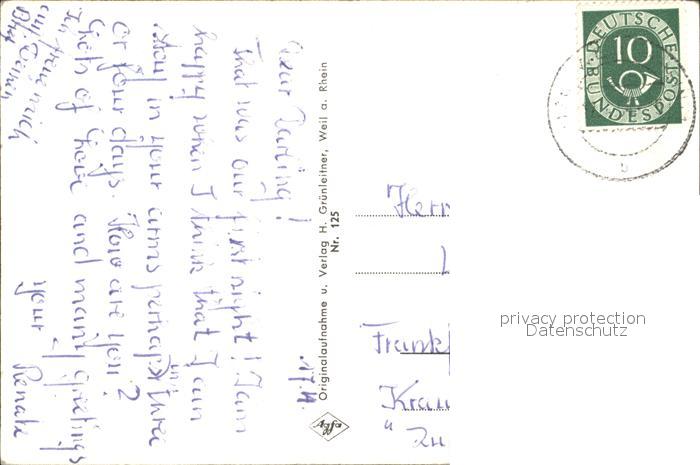 17.4.
Dear Darling!
That was our first night! I am
happy when I think that I can
stay in your arms perhaps in three
or four days. How are you?
Lots of love and many greetings
your
Renate
Originalaufnahme u. Verlag H. Grünleitner, Weil a. Rhein
Nr. 125
Agfa
DEUTSCHE
BUNDESPOST
10
b
Herr
Frankf
Kran
privacy protection
Datenschutz